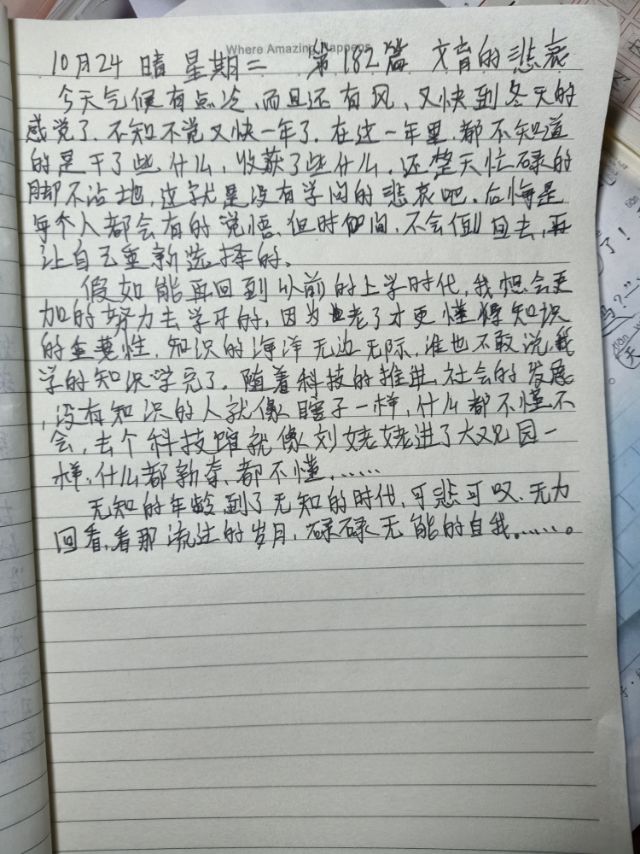 Where Amazing Happens
10月24 晴 星期二 第182篇 文盲的悲哀
今天气候有点冷,而且还有风、又快到冬天的
感觉了.不知不觉又快一年了.在这一年里.都不知道
的是干了些什么,收获了些什么.还整天忙碌的
脚不沾地,这就是没有学问的悲哀吧.后悔是
每个人都会有的觉悟.但时间.不会倒回去,再
让自己重新选择的.
假如能再回到以前的上学时代,我想会更
加的努力去学习的,因为老了才更懂得知识
的重要性.知识的海洋无边无际.谁也不敢说,我
学的知识学完了.随着科技的推进.社会的发展
,没有知识的人就像瞎子一样,什么都不懂不
会,去个科技馆就像刘姥姥进了大观园一
样,什么都新奇、都不懂.……
无知的年龄到了无知的时代,可悲可叹.无力
回看,看那流过的岁月,碌碌无能的自我……。
了!